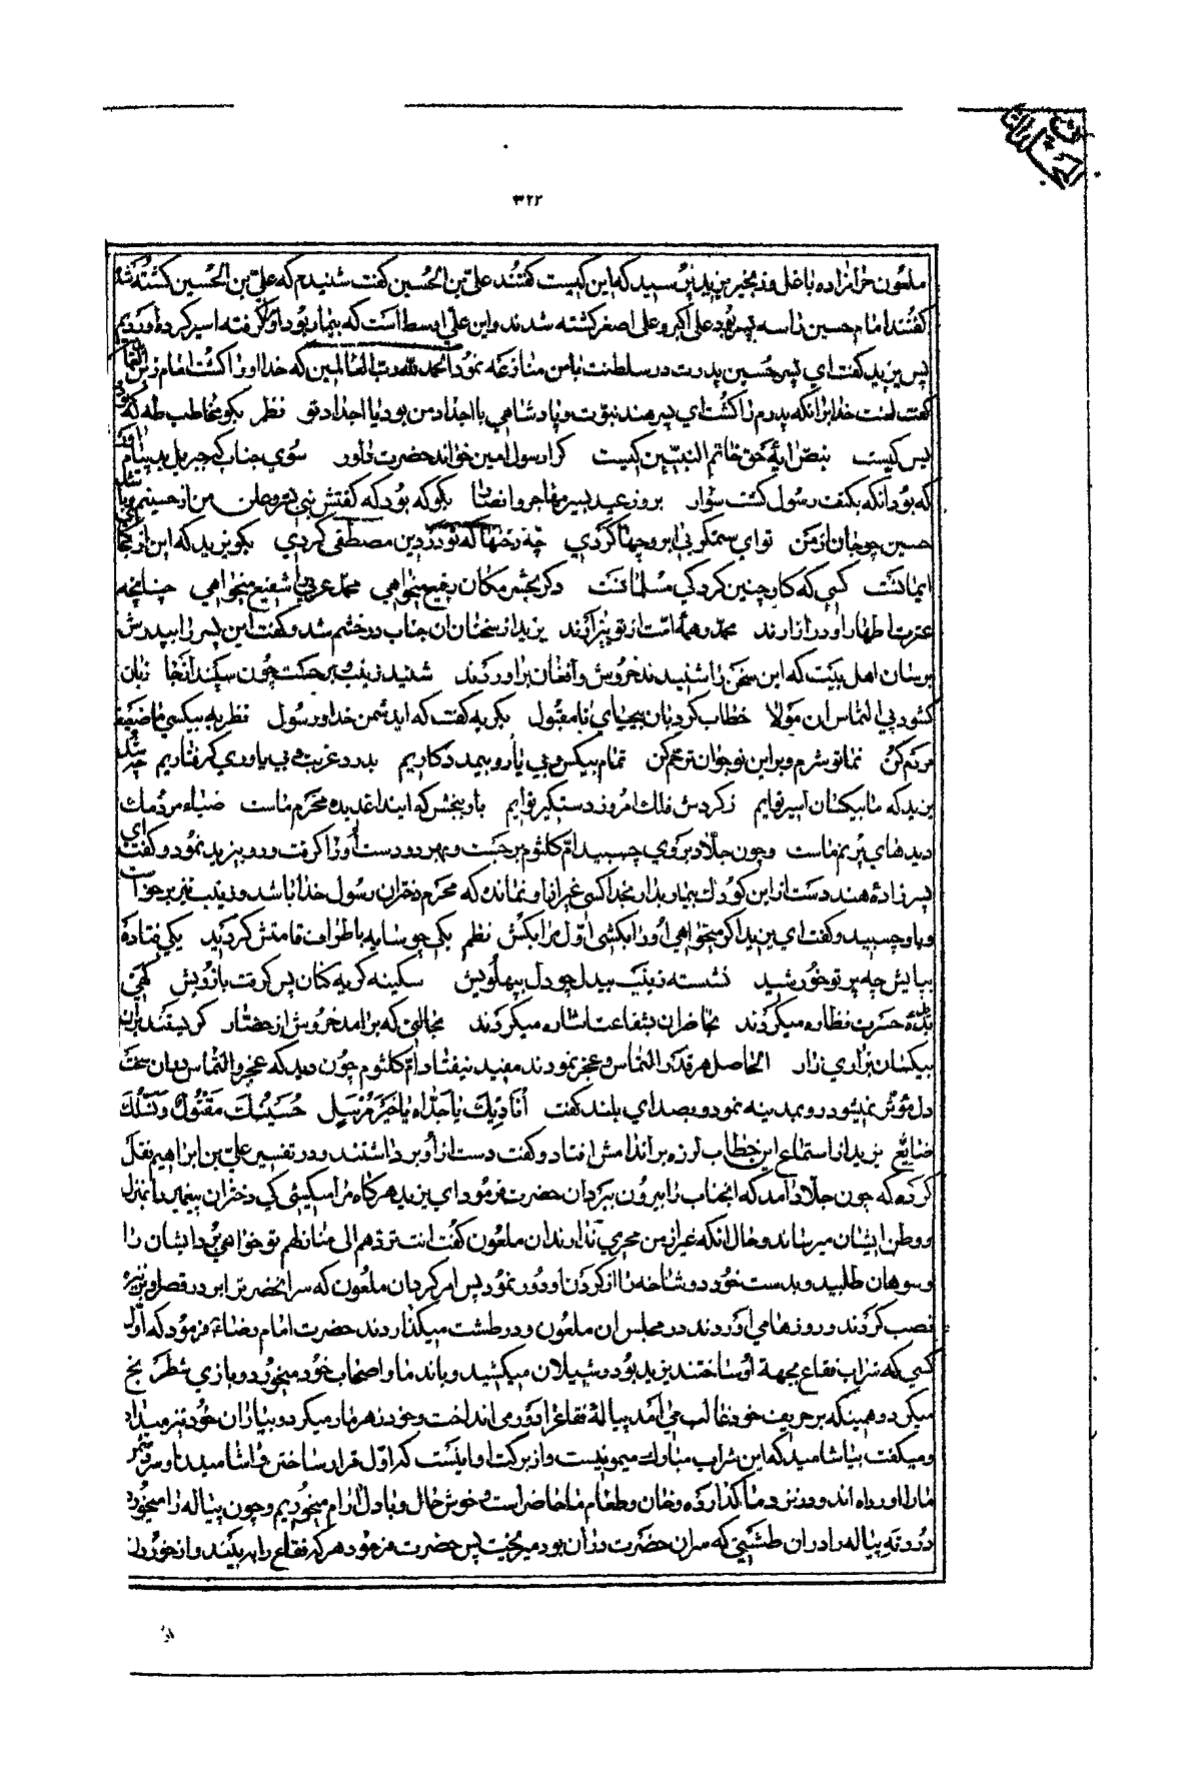 ۳۲۲
ملعون حرامزاده با غل و زنجیر یزید پرسید که این کیست گفتند علی بن الحسین گفت شنیدم که علی بن الحسین کشته شد
گفتند امام حسین را سه پسر بود علی اکبر و علی اصغر کشته شدند و این علی اوسط است که بیمار بود او را گرفته اسیر کرده آوردیم
پس یزید گفت ای پسر حسین پدرت در سلطنت با من منازعه نمود الحمد لله رب العالمین که خدا او را کشت امام زین العابدین
گفت لعنت خدا بر آنکه پدرم را کشت ای پسر هند نبوت و پادشاهی با اجداد من بود یا اجداد تو نظم بگو مخاطب طه که بود
یس کیست بنص آیهٔ حق خاتم النبیین کیست کرا رسول امین خواند حضرت داور سوی جناب که جبریل بد پیام آور
که بود آنکه بکتف رسول گشت سوار بروز عید بسیر مهاجر و انصار بگو که بود که گفتش نبی بسر و علن من از حسینم و باشد
حسین چو جان از من تو ای ستمگر بی آبرو چها کردی چه رخنها که تو در دین مصطفی کردی بگو یزید که این از کجای
ایمانست کسی که کار چنین کرد کی مسلمانست دگر بحشر مکان رفیع میخواهی محمد عربی را شفیع میخواهی چنانچه
عترت اطهار او در آزارند محمد و همهٔ امت از تو بیزارند یزید از سخنان آن جناب در خشم شد و گفت این پسر را بپدرش
برسان اهل بیت که این سخن را شنیدند خروش و افغان برآوردند شنید زینب و برجست چون سپند از جا زبان
گشود پی التماس آن مولا خطاب کرد بآن بیحیای نامقبول بگریه گفت که ای دشمن خدا و رسول نظر به بیکسی ما ضعیف
مردم کن نما تو شرم و بر این نوجوان ترحم کن تمام بیکس و بی یار و بیمددکاریم بدرد غربت و بی یاوری گرفتاریم
یزید که ما بیکسان اسیر توایم ز گردش فلک امروز دستگیر توایم باو ببخش که ایندا غدیده محرم ماست ضیاء مردمک
دیدهای پر نم ماست و چون جلاد بروی چسبید ام کلثوم برجست و بهر دو دست او را گرفت و رو بیزید نمود و گفت ای
پسر زادهٔ هند دست از این کودک بیمار بدار بخدا کسی غیر از او نمانده که محرم دختران رسول خدا باشد و زینب نیز برخواست
و باو چسبید و گفت ای یزید اگر میخواهی او را بکشی اول مرا بکش نظم یکی چو سایه باطراف قامتش گردید یکی فتاده
بپایش چه پرتو خورشید نشسته زینب بیدل چو دل بپهلویش سکینه گریه کنان پس گرفت بازویش گهی
بدیدهٔ حسرت نظاره میکردند بحاضران بشفاعت اشاره میکردند بحالتی که برآمد خروش از حضار گریستند بر آن
بیکسان بزاری زار الحاصل هر قدر التماس و عجز نمودند مفید نیفتاد ام کلثوم چون دید که عجز و التماس بآن سخت
دل مؤثر نمیشود رو بمدینه نمود و بصدای بلند گفت اُنادیک یا جداه یا خیر مرسل حسینک مقتول و نسلک
ضایع یزید از استماع این خطاب لرزه بر اندامش افتاد و گفت دست از او برداشتند و در تفسیر علی بن ابراهیم نقل
کرده که چون جلاد آمد که آنجناب را بیرون ببرد آن حضرت فرمود ای یزید هرگاه مرا میکشی کی دختران پیغمبر را بمنزل
و وطن ایشان میرساند و حال آنکه غیر از من محرمی ندارند آن ملعون گفت انت تردهم الی منازلهم تو خواهی برد ایشان را
و سوهان طلبید و بدست خود دو شاخه را از گردن او دور نمود پس امر کرد آن ملعون که سر آنحضرت را بر در قصر او نیزه
نصب کردند و روزها می آوردند در مجلس آن ملعون و در طشت میگذاردند حضرت امام رضا ع فرمود که اول
کسی که شراب فقاع بجهة او ساختند یزید بود و شیلان میکشید و با ندما و اصحاب خود میخورد و بازی شطرنج
میکرد و همینکه بر حریف خود غالب می آمد پیالهٔ فقاع را بر روی انداخت و خود زهرمار میکرد و بیاران خود نیز میداد
و میگفت بیاشامید که این شراب مبارک میمونیست و از برکت او اینست که اول قرار ساختن و آشامیدن او سر دشمن
ما را آورده اند و در نزد ما گذارده و خان و طعام ما حاضر است و خوش حال و با دل آرام میخوریم و چون پیاله را میخورد
درد ته پیاله را در آن طشتی که سر آن حضرت در آن بود میریخت پس حضرت فرمود هر که فقاع را ببیند و از خوردن
از